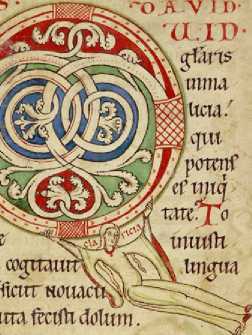 DAVID
U.ID
glaris
inma
licia!
qui
potens
es iniq
tate. To
cla ricia
e iniusti
cogitauit lingua
sicut nouacu
uta fecisti dolum.